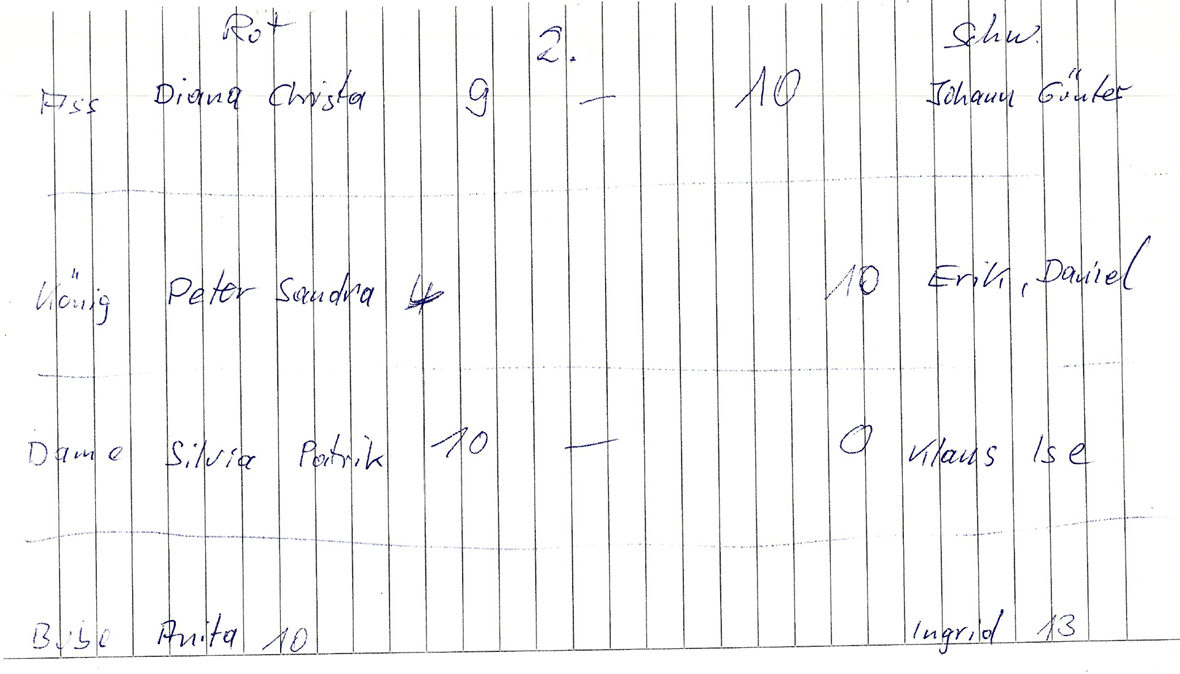 Rot 2. Schw.
Ass Diana Christa 9 — 10 Johann Günter
König Peter Sandra 4 10 Erik, Daniel
Dame Silvia Patrik 10 — 0 Klaus Ise
Bube Anita 10 Ingrid 13